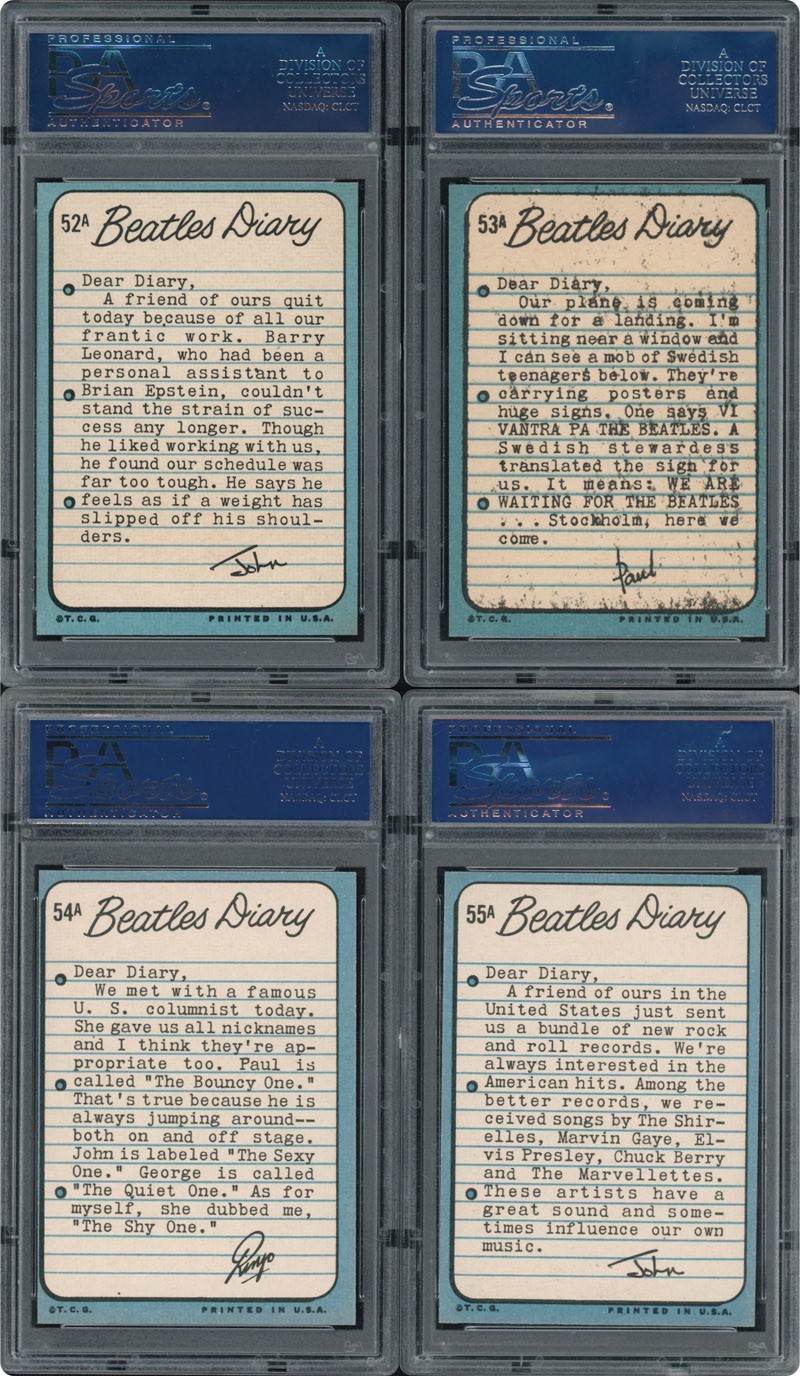 PROFESSIONAL
PSA
Sports®
AUTHENTICATOR
A
DIVISION OF
COLLECTORS
UNIVERSE
NASDAQ: CLCT
52A Beatles Diary
Dear Diary,
A friend of ours quit
today because of all our
frantic work. Barry
Leonard, who had been a
personal assistant to
Brian Epstein, couldn't
stand the strain of suc-
cess any longer. Though
he liked working with us,
he found our schedule was
far too tough. He says he
feels as if a weight has
slipped off his shoul-
ders.
John
©T.C.G. PRINTED IN U.S.A.
PROFESSIONAL
PSA
Sports®
AUTHENTICATOR
A
DIVISION OF
COLLECTORS
UNIVERSE
NASDAQ: CLCT
53A Beatles Diary
Dear Diary,
Our plane is coming
down for a landing. I'm
sitting near a window and
I can see a mob of Swedish
teenagers below. They're
carrying posters and
huge signs. One says VI
VANTRA PA THE BEATLES. A
Swedish stewardess
translated the sign for
us. It means: WE ARE
WAITING FOR THE BEATLES
. . . Stockholm, here we
come.
Paul
©T.C.G. PRINTED IN U.S.A.
PROFESSIONAL
PSA
Sports®
AUTHENTICATOR
A
DIVISION OF
COLLECTORS
UNIVERSE
NASDAQ: CLCT
54A Beatles Diary
Dear Diary,
We met with a famous
U. S. columnist today.
She gave us all nicknames
and I think they're ap-
propriate too. Paul is
called "The Bouncy One."
That's true because he is
always jumping around--
both on and off stage.
John is labeled "The Sexy
One." George is called
"The Quiet One." As for
myself, she dubbed me,
"The Shy One."
Ringo
©T.C.G. PRINTED IN U.S.A.
PROFESSIONAL
PSA
Sports®
AUTHENTICATOR
A
DIVISION OF
COLLECTORS
UNIVERSE
NASDAQ: CLCT
55A Beatles Diary
Dear Diary,
A friend of ours in the
United States just sent
us a bundle of new rock
and roll records. We're
always interested in the
American hits. Among the
better records, we re-
ceived songs by The Shir-
elles, Marvin Gaye, El-
vis Presley, Chuck Berry
and The Marvellettes.
These artists have a
great sound and some-
times influence our own
music.
John
©T.C.G. PRINTED IN U.S.A.